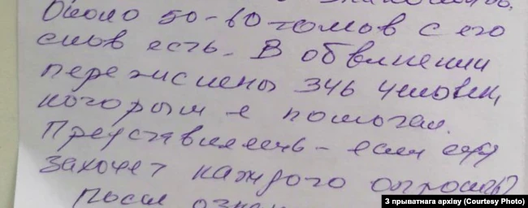 Около 50-60 томов с его
слов есть. В обвинении
перечислены 346 человек,
которым я помогал.
Представляешь - если суд
захочет каждого опросить?
После
З прыватнага архіву (Courtesy Photo)